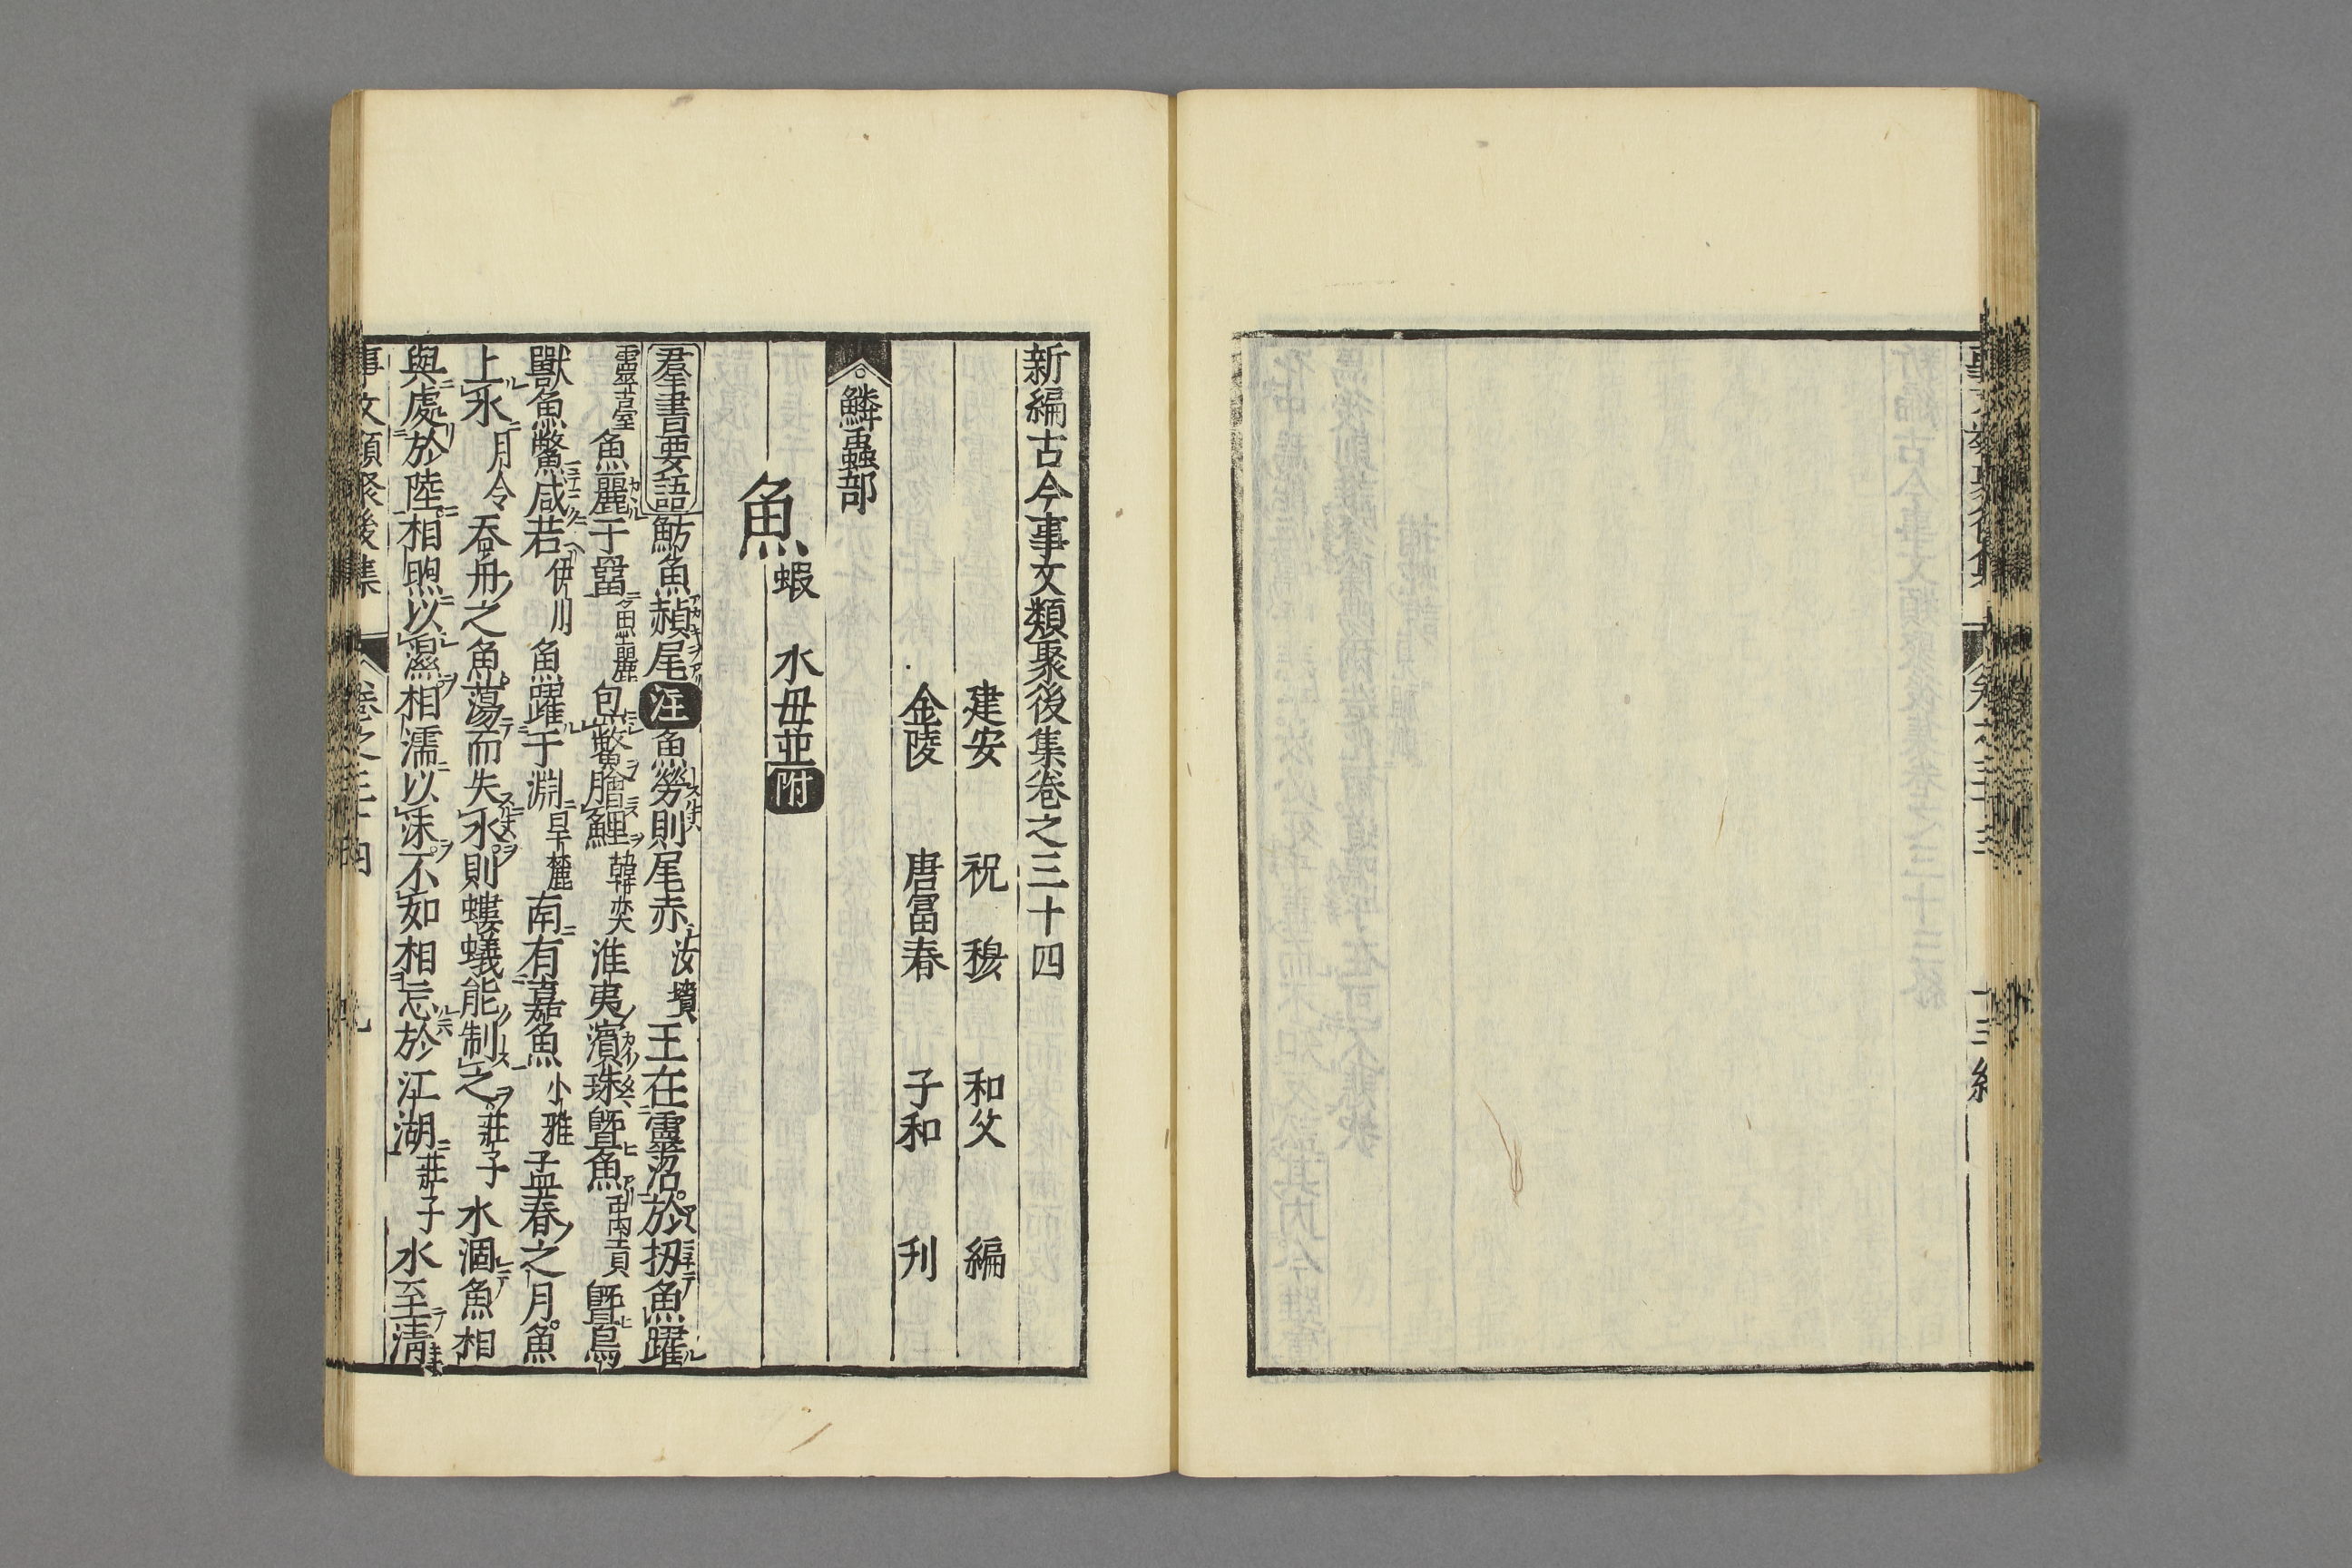 新編古今事文類聚後集卷之三十四
建安　祝　穆　和父　編
金陵　唐富春　子和　刊
鱗蟲部
魚蝦　水母並附
羣書要語魴魚赬尾注魚勞則尾赤汝墳王在靈沼於牣魚躍
靈臺魚麗于罶魚麗炰鱉膾鯉韓奕淮夷蠙珠曁魚禹貢曁鳥
獸魚鱉咸若伊川魚躍于淵旱麓南有嘉魚小雅孟春之月魚
上氷月令吞舟之魚蕩而失水則螻蟻能制之莊子水涸魚相
與處於陸相呴以濕相濡以沫不如相忘於江湖莊子水至清
事文類聚後集　卷之三十四